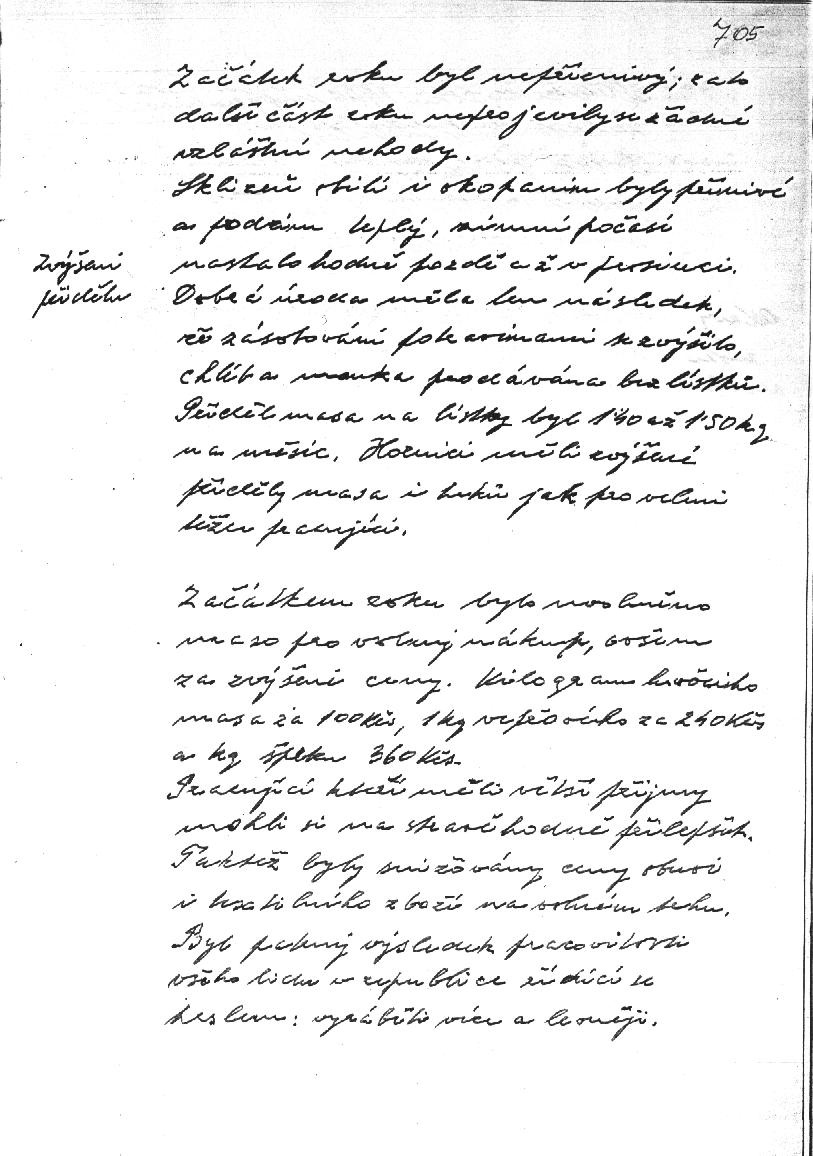 705
Začátek roku byl nepříznivý; zato
další část roku neprojevily se žádné
zvláštní nehody.
Sklizeň obilí i okopanin byly příznivé
a podzim teplý, zimní počasí
Zvýšení
přídělu
nastalo hodně pozdě až v prosinci.
Dobrá úroda měla ten následek,
že zásobování potravinami se zvýšilo,
chléb a mouka prodávána bez lístků.
Příděl masa na lístky byl 1'40 až 1'50 kg
na měsíc. Horníci měli zvýšené
příděly masa i tuků jak pro velmi
těžce pracující.
Začátkem roku bylo uvolněno
maso pro volný nákup, ovšem
za zvýšené ceny. Kilogram hovězího
masa za 100 Kčs, 1 kg vepřového za 240 Kčs
a kg špeku 360 Kčs.
Pracující kteří měli větší příjmy
mohli si na stravě hodně přilepšit.
Taktéž byly snižovány ceny obuvi
i textilního zboží na volném trhu.
Byl patrný výsledek pracovitosti
všeho lidu v republice řídící se
heslem: vyráběti více a levněji.